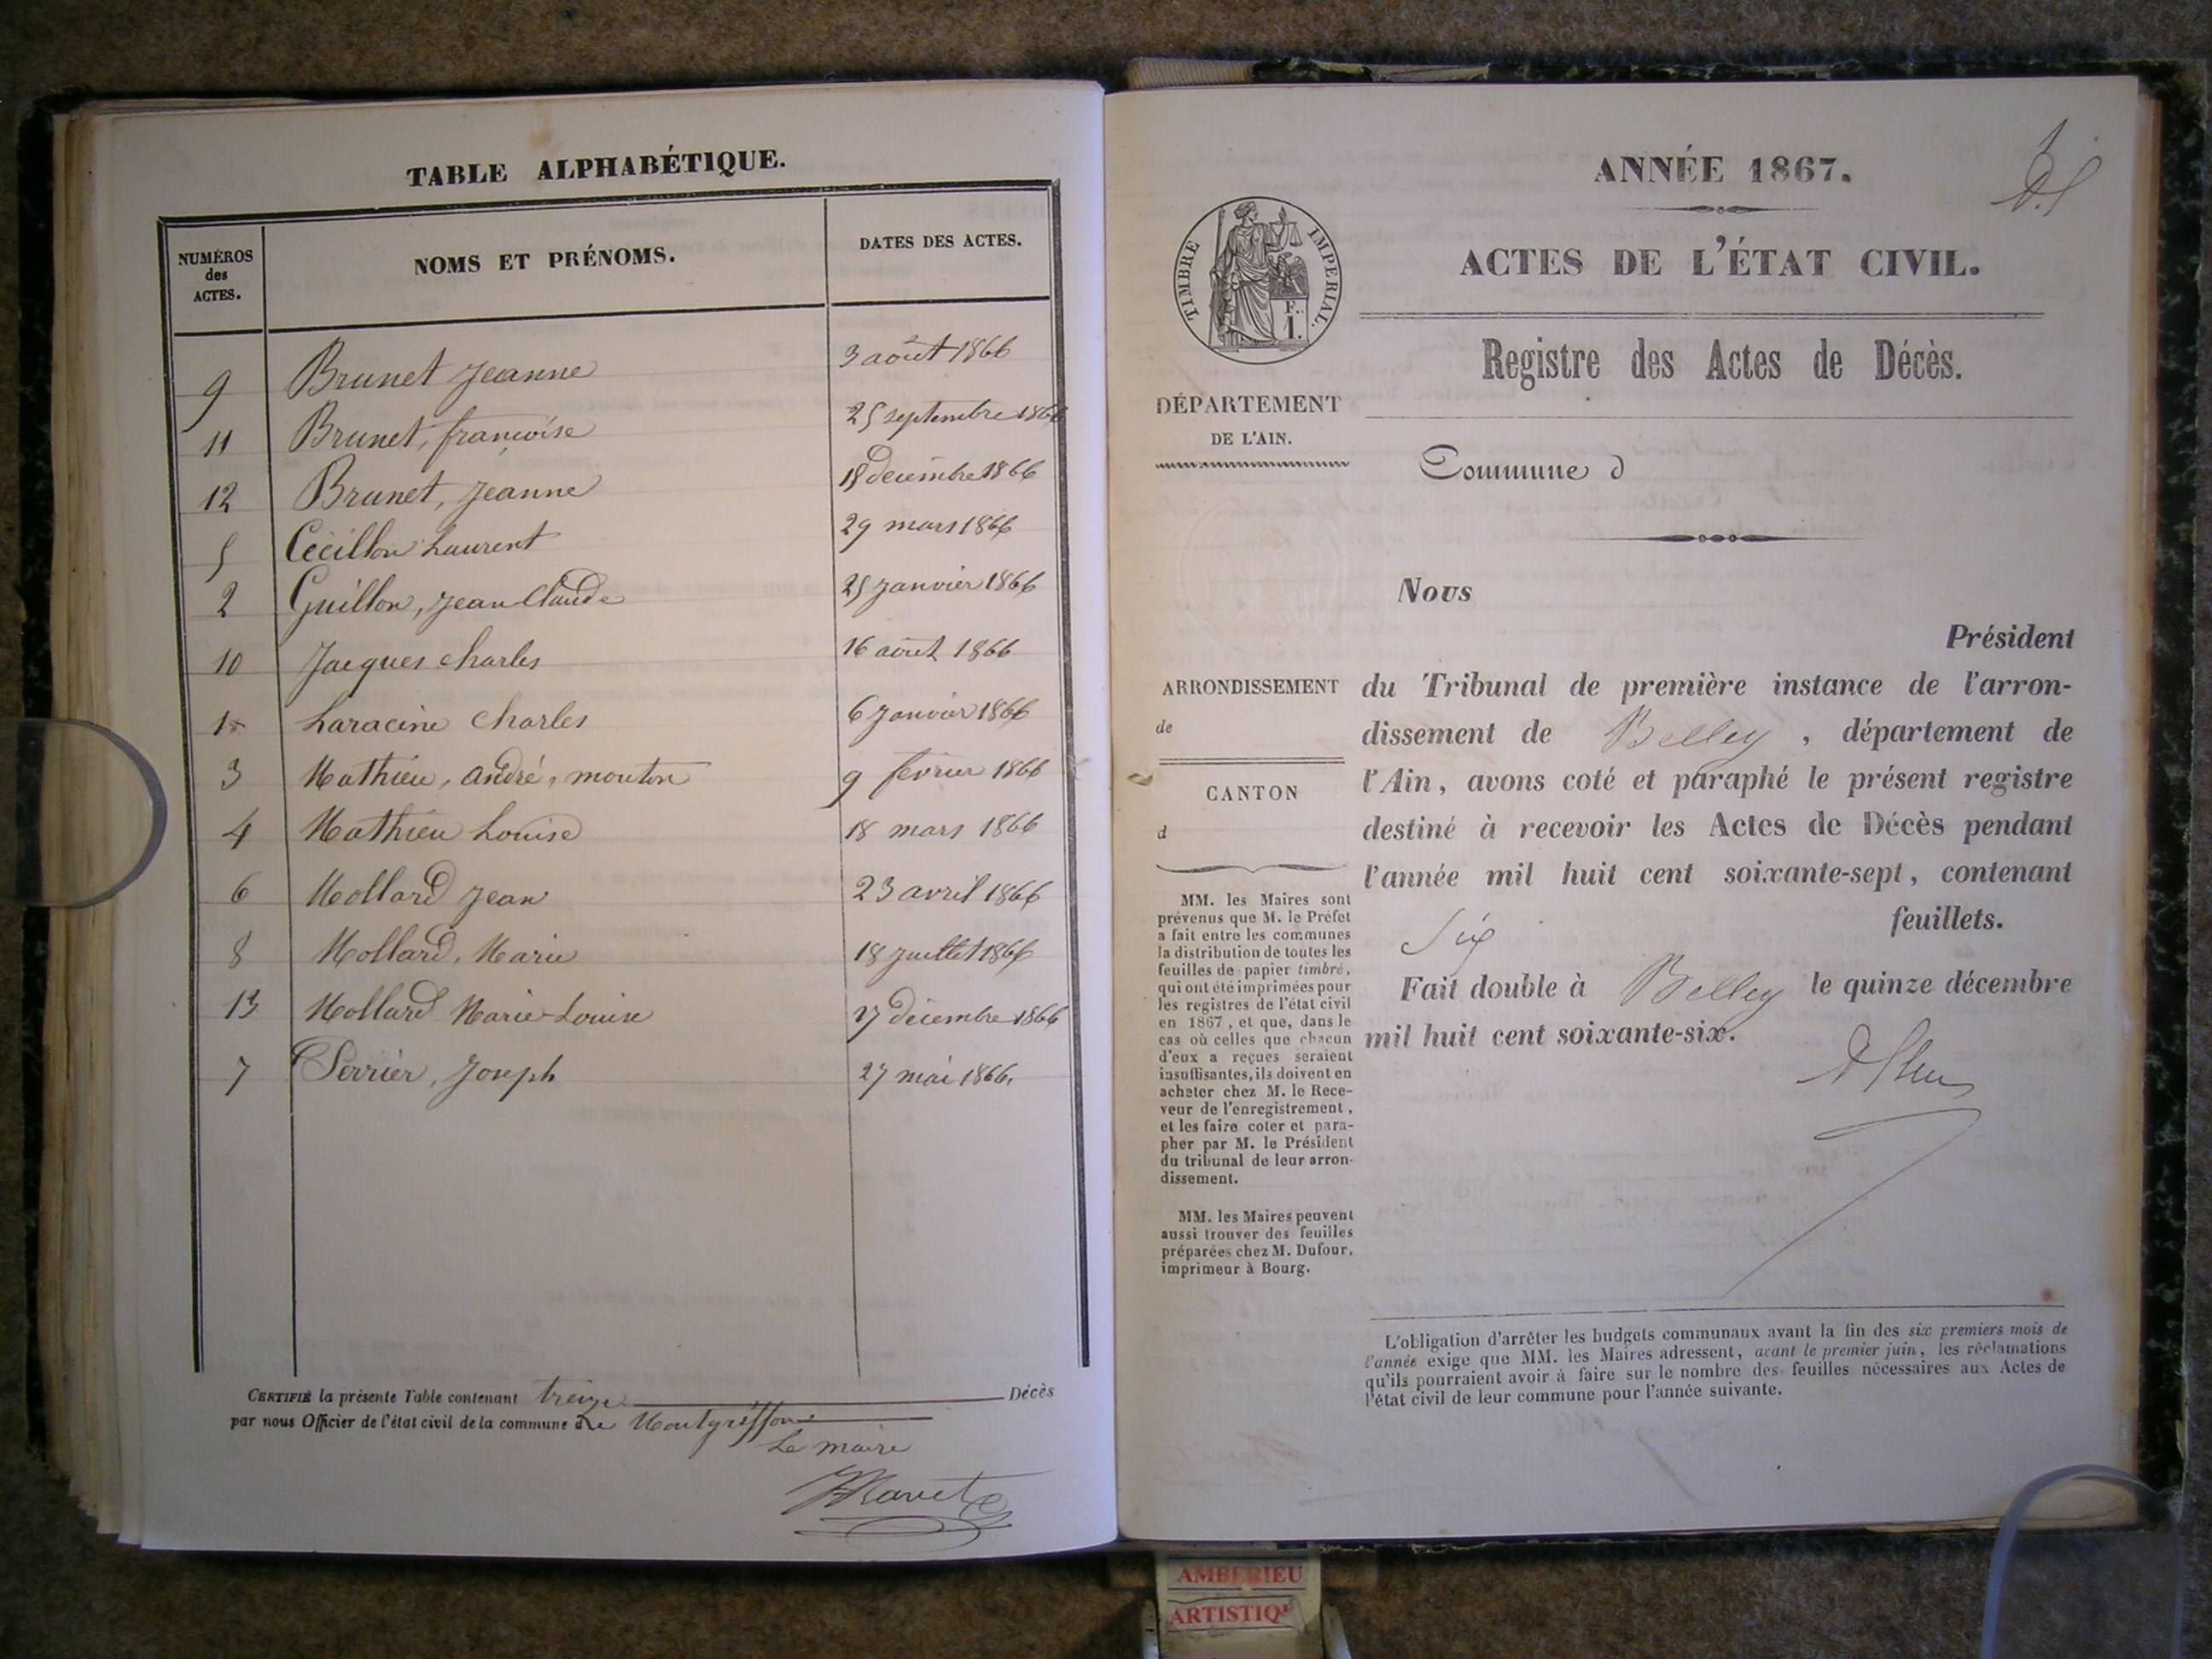 TABLE ALPHABÉTIQUE.
NUMÉROS des ACTES.
NOMS ET PRÉNOMS.
DATES DES ACTES.
9 Brunet Jeanne 3 août 1866
11 Brunet, françoise 25 septembre 1866
12 Brunet, Jeanne 18 decembre 1866
5 Cécillon Laurent 29 mars 1866
2 Guillon, Jean Claude 25 Janvier 1866
10 Jacques charles 16 août 1866
1 Laracine Charles 6 Janvier 1866
3 Mathieu, André, mouton 9 fevrier 1866
4 Mathieu Louise 18 mars 1866
6 Mollard Jean 23 avril 1866
8 Mollard, Marie 18 Juillet 1866
13 Mollard Marie-Louise 27 décembre 1866
7 Serrier, Joseph 27 mai 1866.
CERTIFIÉ la présente Table contenant treize Décès
par nous Officier de l'état civil de la commune de Montgriffon
Le maire
ANNÉE 1867.
ACTES DE L'ÉTAT CIVIL.
TIMBRE IMPERIAL.
F. 1.
Registre des Actes de Décès.
DÉPARTEMENT
DE L'AIN.
Commune d
Nous
Président
ARRONDISSEMENT
de
CANTON
d
du Tribunal de première instance de l'arron-
dissement de Belley, département de
l'Ain, avons coté et paraphé le présent registre
destiné à recevoir les Actes de Décès pendant
l'année mil huit cent soixante-sept, contenant
Six feuillets.
Fait double à Belley le quinze décembre
mil huit cent soixante-six.
MM. les Maires sont
prévenus que M. le Préfet
a fait entre les communes
la distribution de toutes les
feuilles de papier timbré,
qui ont été imprimées pour
les registres de l'état civil
en 1867, et que, dans le
cas où celles que chacun
d'eux a reçues seraient
insuffisantes, ils doivent en
acheter chez M. le Rece-
veur de l'enregistrement,
et les faire coter et para-
pher par M. le Président
du tribunal de leur arron-
dissement.
MM. les Maires peuvent
aussi trouver des feuilles
préparées chez M. Dufour,
imprimeur à Bourg.
L'obligation d'arrêter les budgets communaux avant la fin des six premiers mois de
l'année exige que MM. les Maires adressent, avant le premier juin, les réclamations
qu'ils pourraient avoir à faire sur le nombre des feuilles nécessaires aux Actes de
l'état civil de leur commune pour l'année suivante.
AMBERIEU
ARTISTIQ